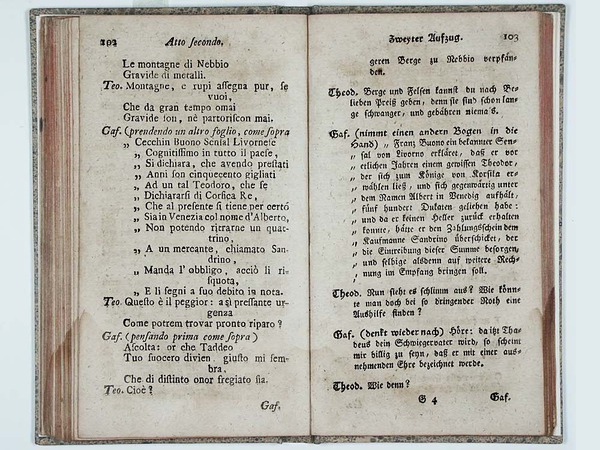 202 Atto secondo.
Le montagne di Nebbio
Gravide di metalli.
Teo. Montagne, e rupi assegna pur, se
vuoi,
Che da gran tempo omai
Gravide son, nè partoriscon mai.
Gaf. (prendendo un altro foglio, come sopra
„ Cecchin Buono Sensal Livornese
„ Cognitissimo in tutto il paese,
„ Si dichiara, che avendo prestati
„ Anni son cinquecento gigliati
„ Ad un tal Teodoro, che se
„ Dichiararsi di Corsica Re,
„ Che al presente si tiene per certo
„ Sia in Venezia col nome d'Alberto,
„ Non potendo ritrarne un quat-
trino,
„ A un mercante, chiamato San-
drino,
„ Manda l' obbligo, acciò li ri-
squota,
„ E li segni a suo debito in nota.
Teo. Questo è il peggior: a sì pressante ur-
genza
Come potrem trovar pronto riparo?
Gaf. (pensando prima come sopra)
Ascolta: or che Taddeo
Tuo suocero divien giusto mi sem-
bra,
Che di distinto onor fregiato sia.
Teo. Cioè?
Gaf.
Zweyter Aufzug. 103
geren Berge zu Nebbio verpfän-
den.
Theod. Berge und Felsen kannst du nach Be-
lieben Preiß geben, denn sie sind schon lan-
ge schwanger, und gebähren niemals.
Gaf. (nimmt einen andern Bogen in die
Hand) „ Franz Buono ein bekannter Sen-
„ sal von Livorno erkläret, daß er vor
„ etlichen Jahren einem gewissen Theodor,
„ der sich zum Könige von Korsika er-
„ wählen ließ, und sich gegenwärtig unter
„ dem Namen Albert in Venedig aufhält,
„ fünf hundert Dukaten geliehen habe:
„ und da er keinen Heller zurück erhalten
„ konnte, hätte er den Zahlungsschein dem
„ Kaufmanne Sandrino überschicket, der
„ die Eintreibung dieser Summe besorgen,
„ und selbige alsdenn auf weitere Rech-
„ nung im Empfang bringen soll.
Theod. Nun sieht es schlimm aus? Wie könn-
te man doch bei so dringender Noth eine
Aushilfe finden?
Gaf. (denkt wieder nach) Höre: da itzt Tha-
deus dein Schwiegervater wird, so scheint
mir billig zu seyn, daß er mit einer aus-
nehmenden Ehre bezeichnet werde.
Theod. Wie denn?
G 4 Gaf.